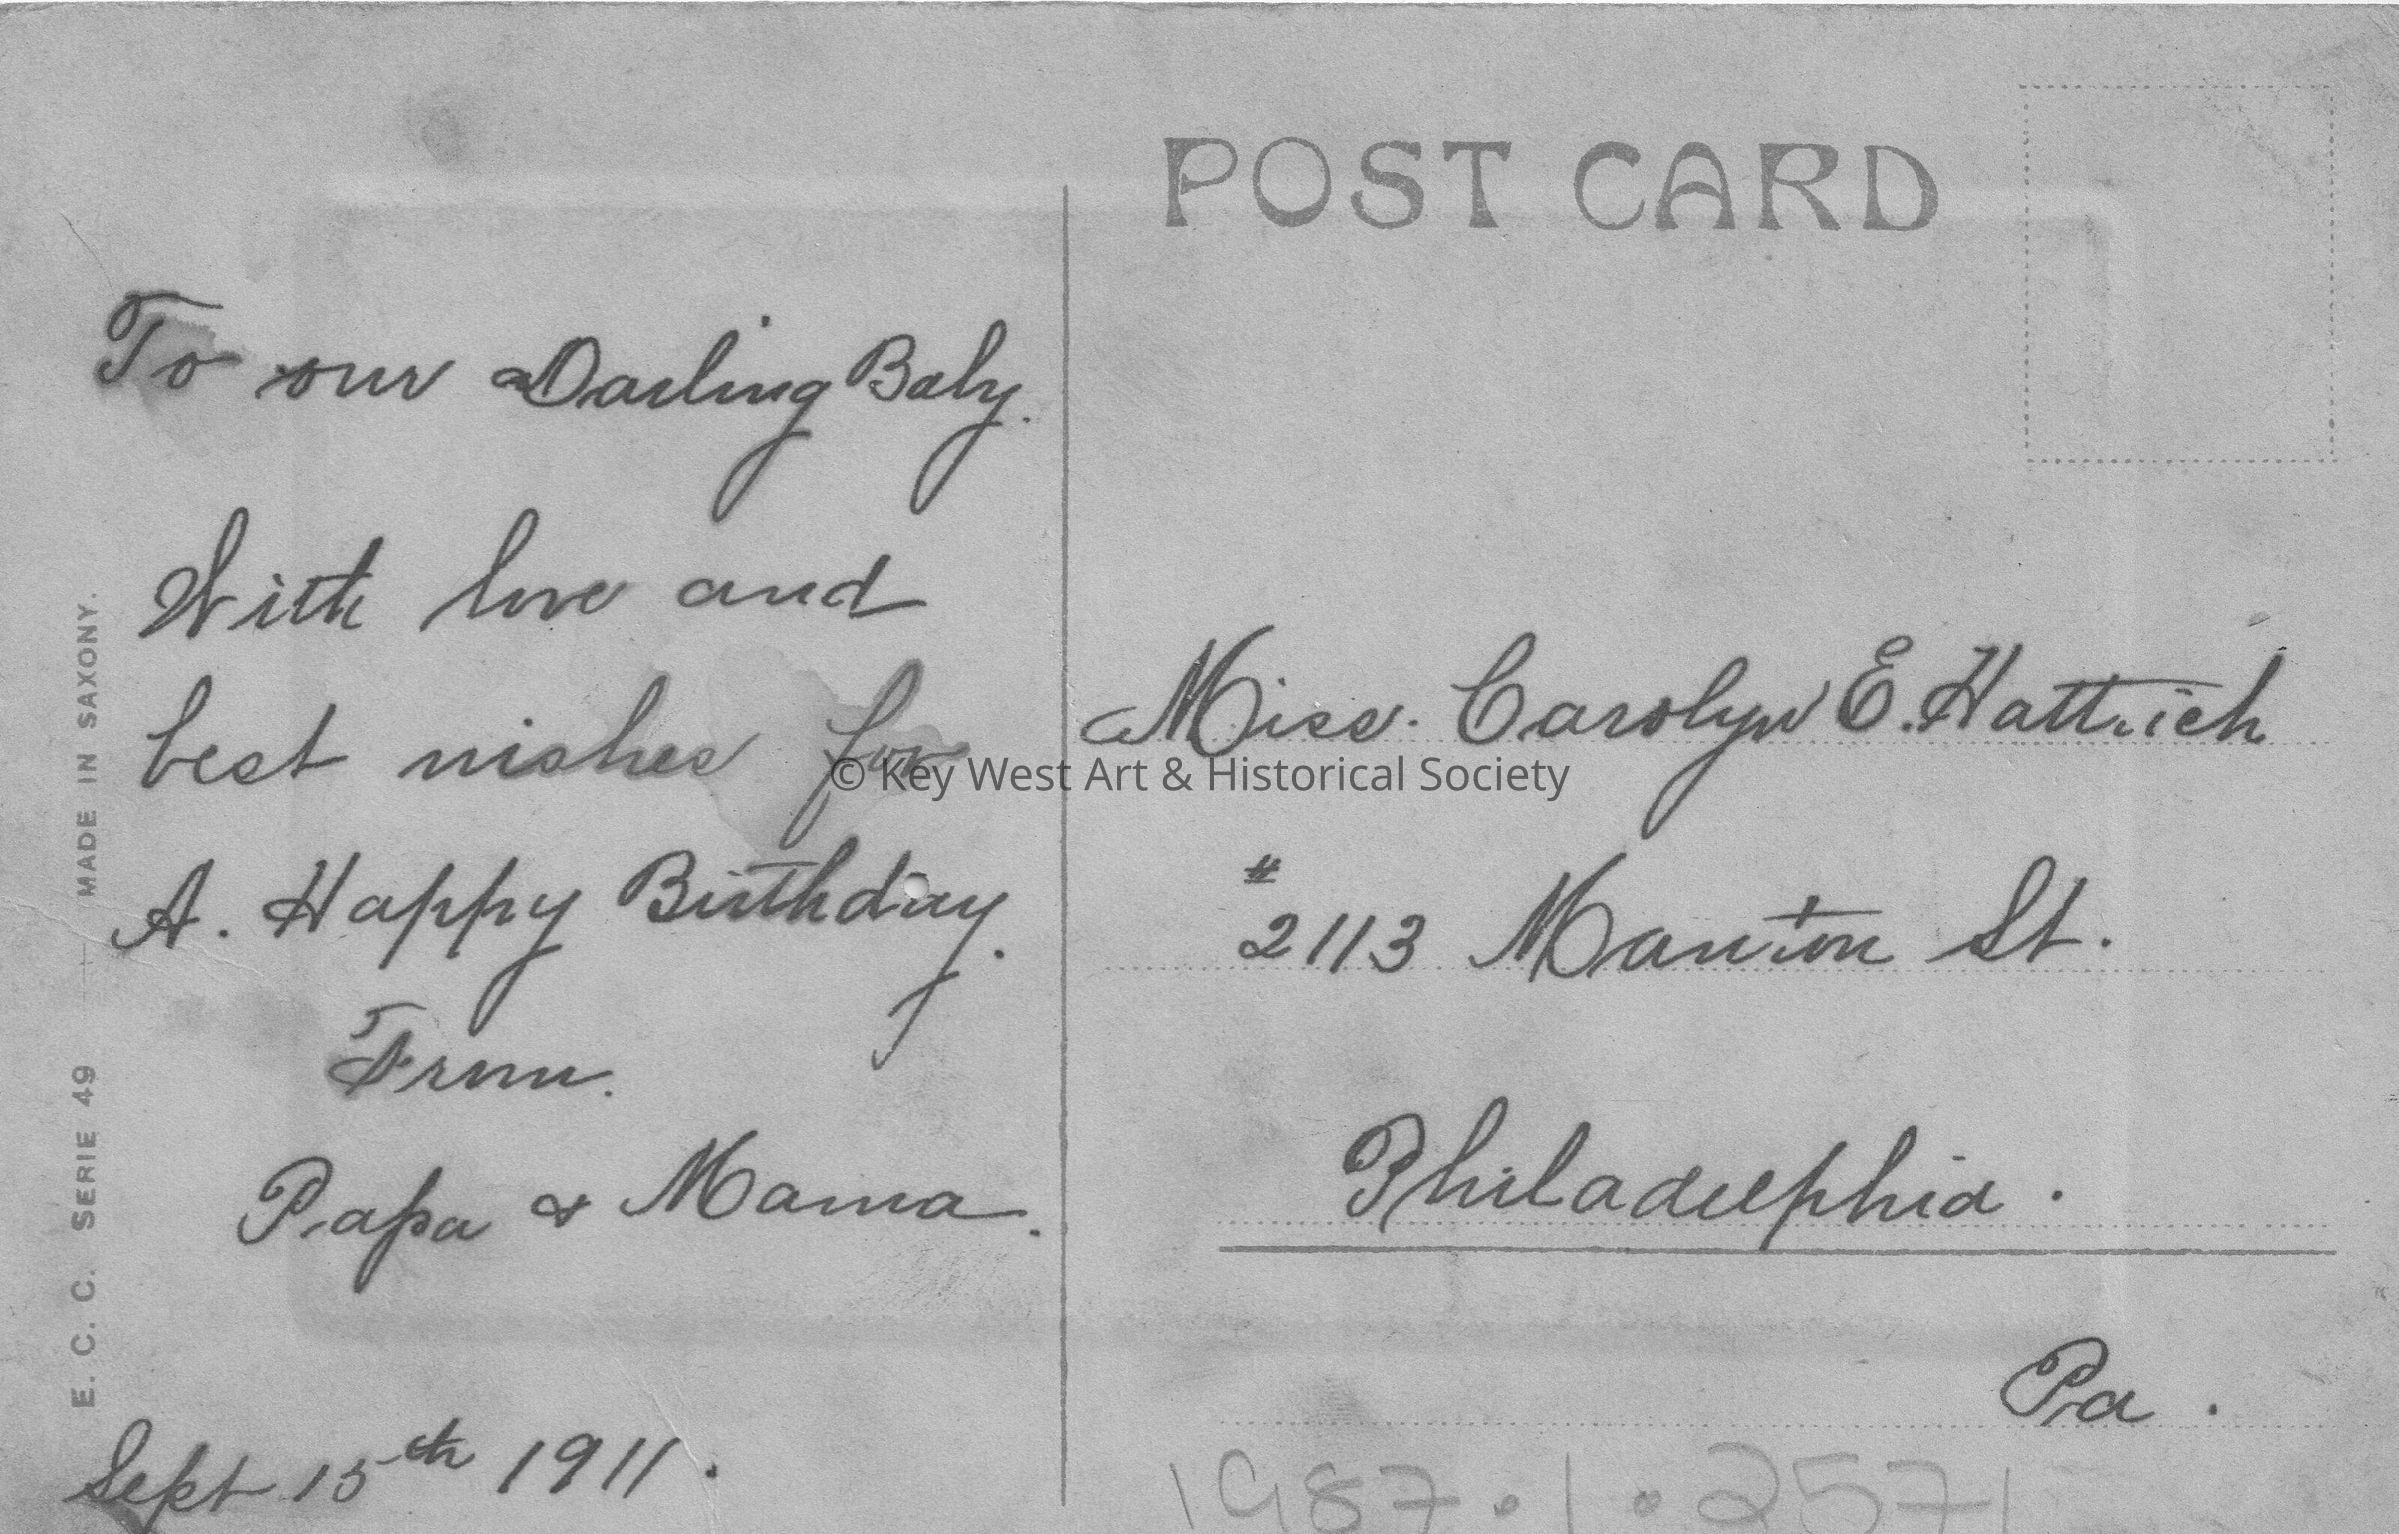 POST CARD
To our Darling Baby.
With love and
best wishes for
A. Happy Birthday.
From.
Papa & Mama.
Sept 15th 1911.
Miss. Carolyn E. Hattrich
# 2113 Manton St.
Philadelphia.
Pa.
E. C. C. SERIE 49 — MADE IN SAXONY.
1987.1.2571
© Key West Art & Historical Society